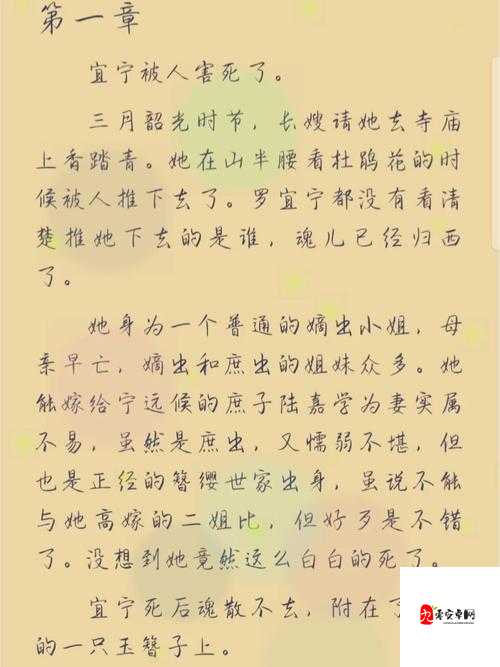 第一章
宜宁被人害死了。
三月韶光时节，长嫂请她去寺庙
上香踏青。她在山半腰看杜鹃花的时
候被人推下去了。罗宜宁都没有看清
楚推她下去的是谁，魂儿已经归西
了。
她身为一个普通的嫡出小姐，母
亲早亡，嫡出和庶出的姐妹众多。她
能嫁给宁远候的庶子陆嘉学为妻实属
不易，虽然是庶出，又懦弱不堪，但
也是正经的簪缨世家出身，虽说不能
与她高嫁的二姐比，但好歹是不错
了。没想到她竟然这么白白的死了。
宜宁死后魂散不去，附在了
的一只玉簪子上。
九零安卓网